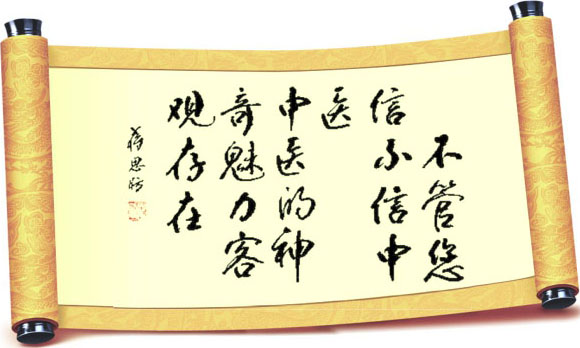 不管您
信不信中
医
中医的神
奇魅力客
观存在
蒋思